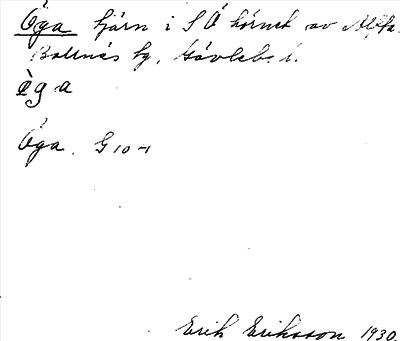 Öga tjärn i SÖ hörnet av Alfta.
Bollnäs tg, Gävleb. l.
ö̀g a
Öga. G 10-1
Erik Eriksson 1930.